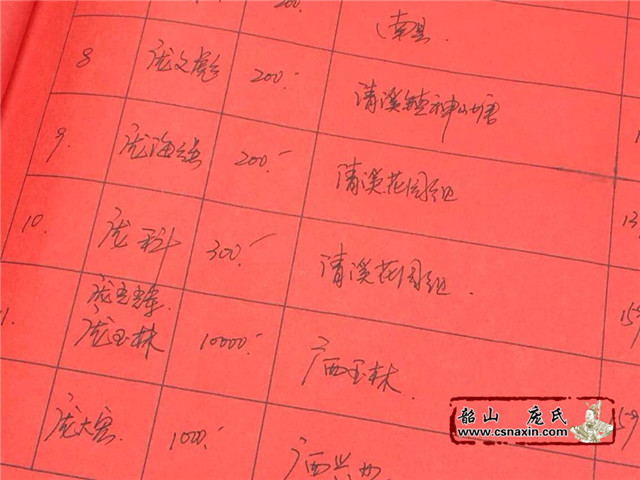 200.
南县
8 庞文彪 200.- 清溪镇神山塘
9. 庞海 200.- 清溪花园组
13
10. 庞科 300.- 清溪花园组.
庞
庞玉林 10000.- 广西玉林.
159
庞大 1000.- 广西
159
韶山 庞氏
www.csnaxin.com